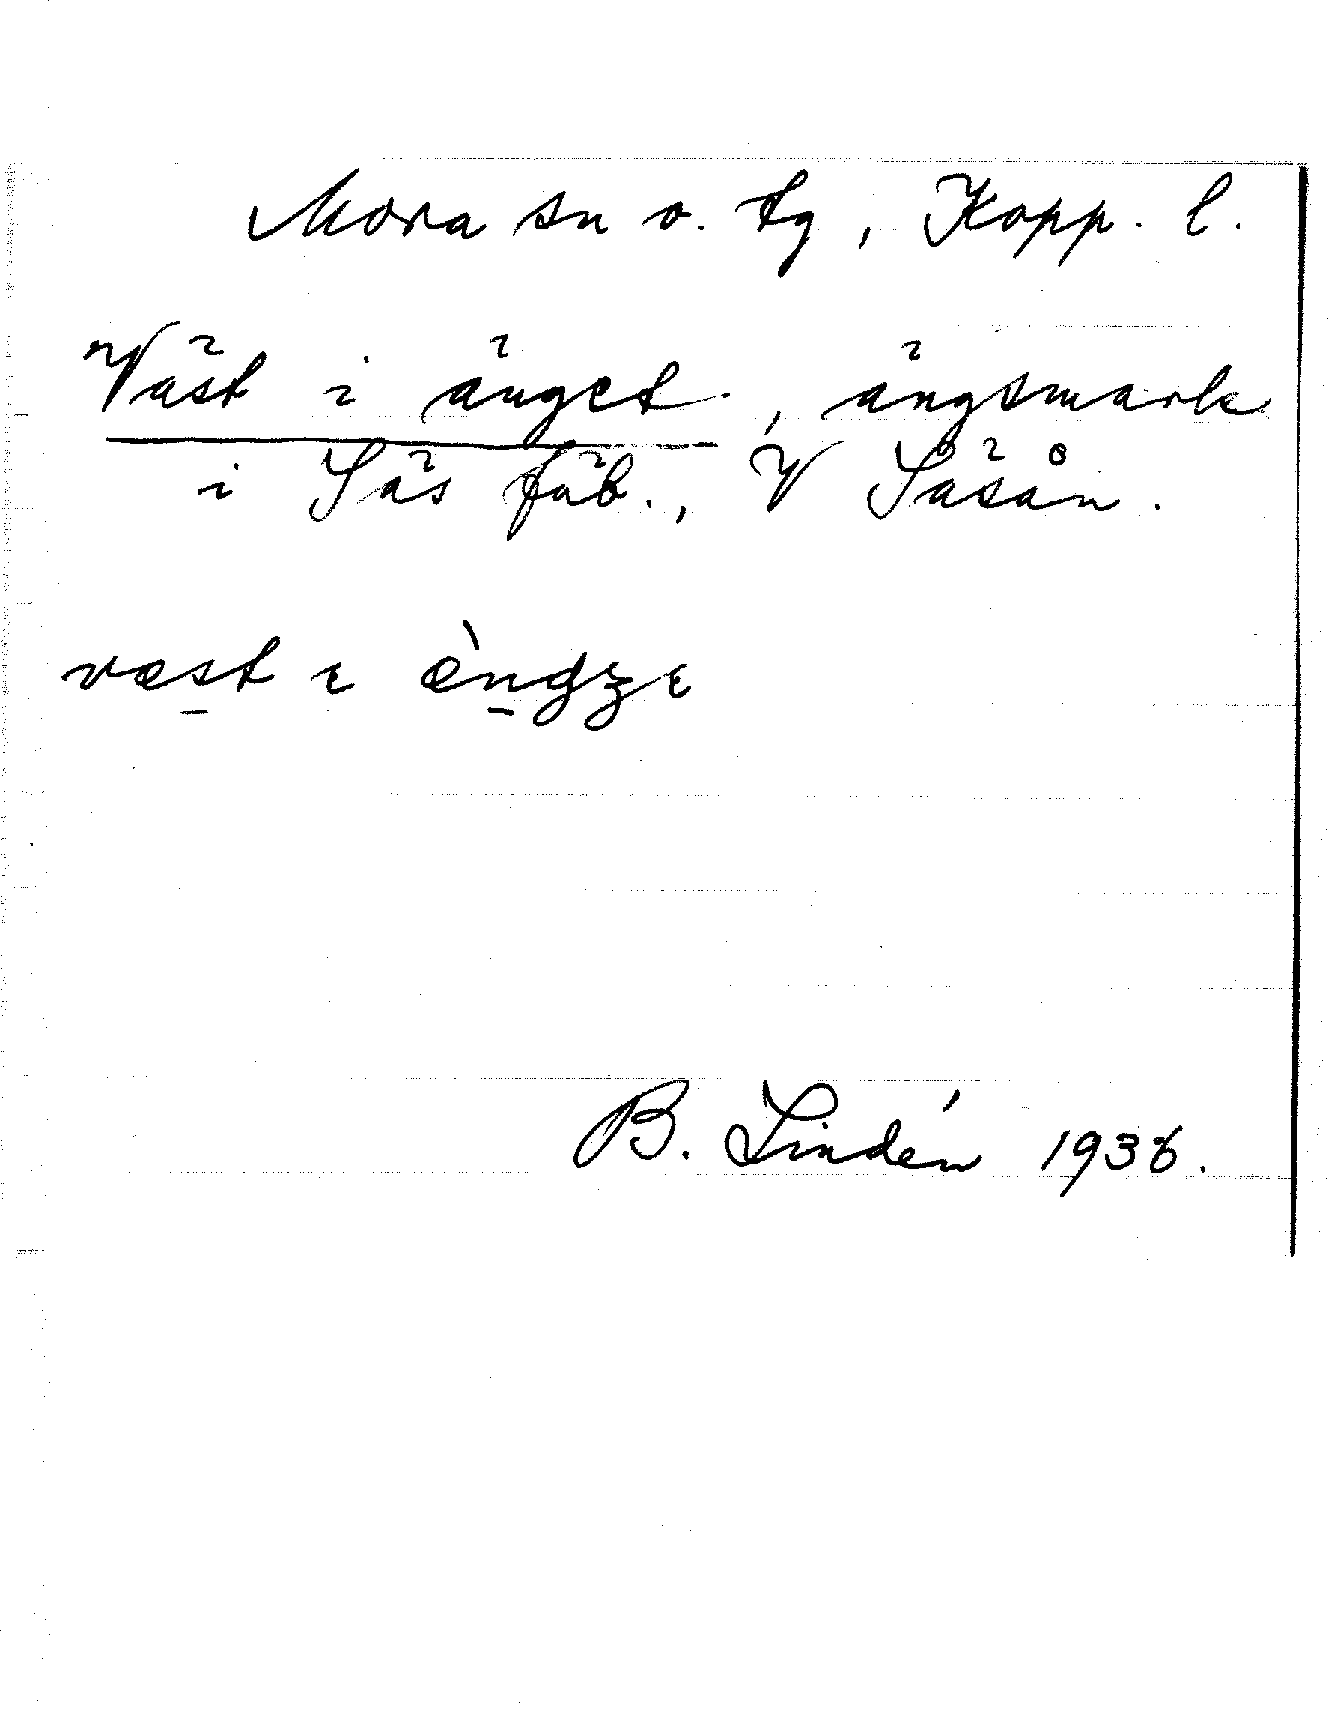 Mora sn o. tg, Kopp. l.
Väst i änget, ängsmark
i Säs fäb., V Säsån.
væst ɩ æ̀ngʒɛ
B. Lindén 1936.